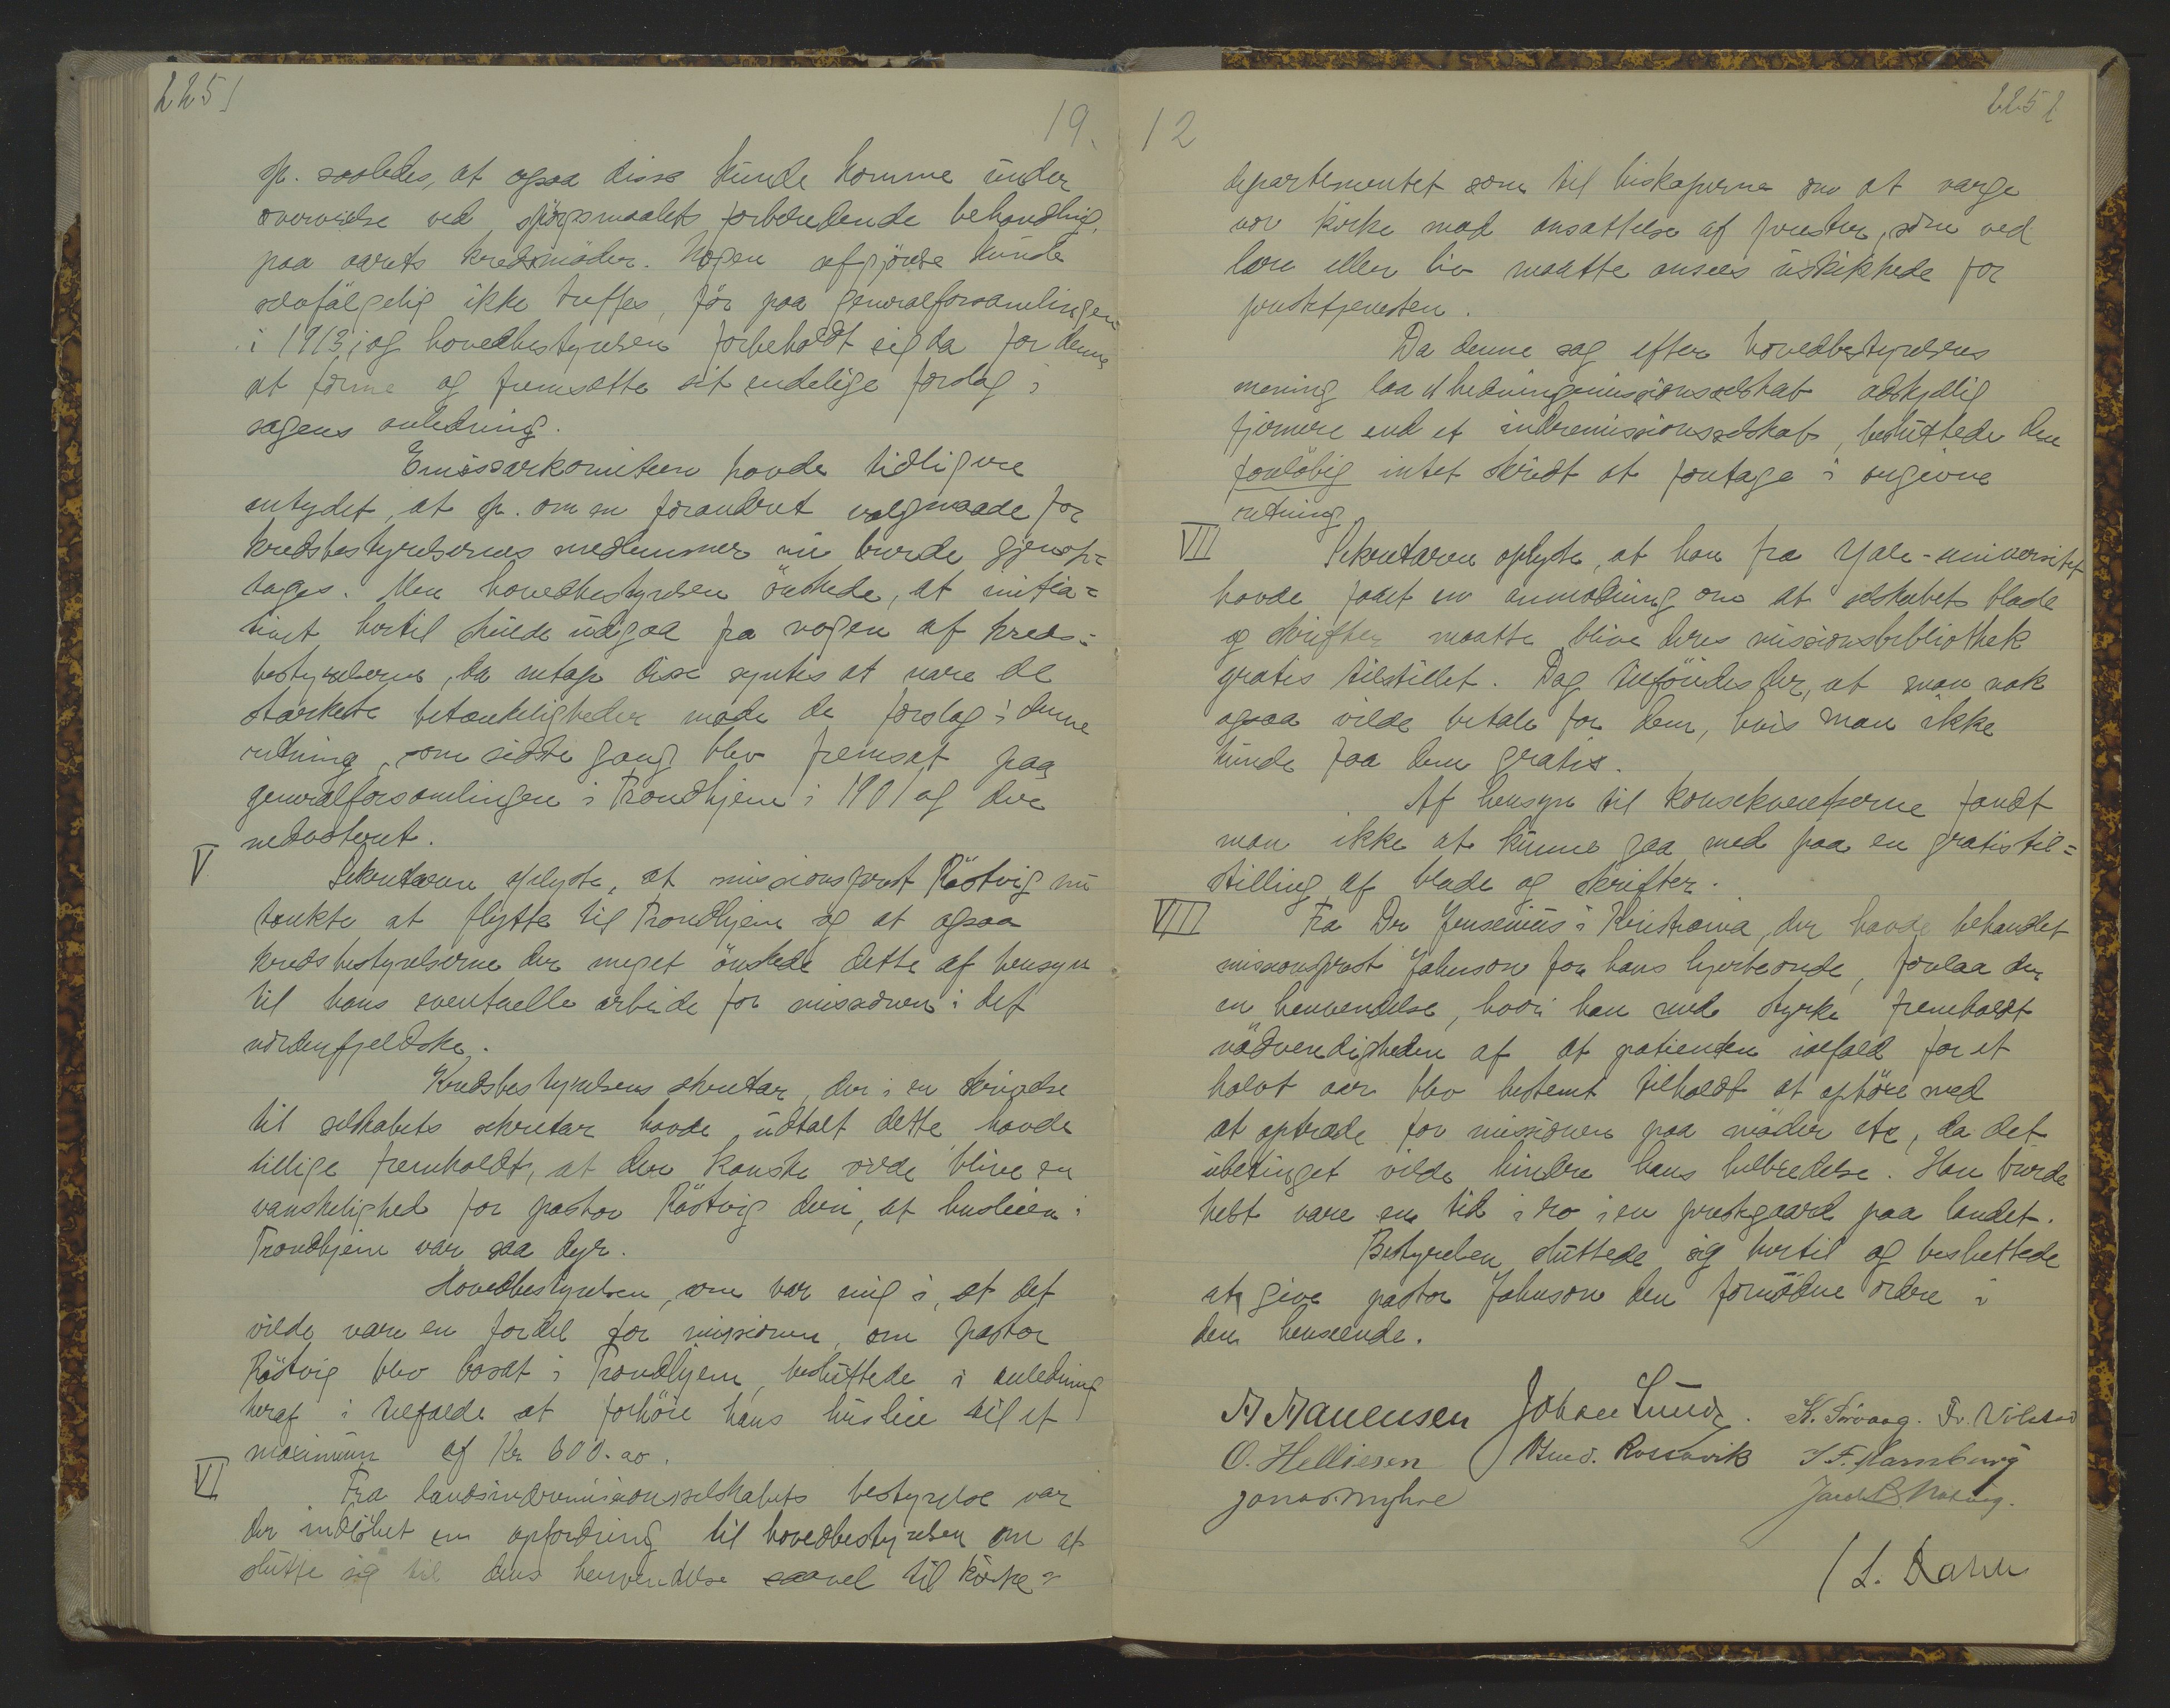 2251
19.
sp. saaledes, at ogsaa disse kunde komme under
overveielse ved spörgsmaalets forberedende behandling
paa aarets kredsmöder. Nogen afgjörelse kunde
selvfölgelig ikke træffes, för paa generalforsamlingen
i 1913, og hovedbestyrelsen forbeholdt sig da for denne
at forme og fremsætte sit endelige forslag i
sagens anledning.
Emissærkomiteen havde tidligere
antydet, at sp. om en forandret valgmaade for
kredsbestyrelsernes medlemmer nu burde gjenop=
tages. Men hovedbestyrelsen önskede, at initia=
tivet hertil skulde udgaa fra nogen af kreds=
bestyrelserne, da netop disse syntes at nære de
stærkeste betænkeligheder mode de forslag i denne
retning, som sidste gang blev fremsat paa
generalforsamlingen i Trondhjem i 1901 og der
nedvoteret.
V
Sekretæren oplyste, at missionsprest Röstvig nu
tænkte at flytte til Trondhjem og at ogsaa
kredsbestyrelserne der meget önskede dette af hensyn
til hans eventuelle arbeide for missionen i det
nordenfjeldske.
Kredsbestyrelsens sekretær, der i en skrivelse
til selskabets sekretær havde udtalt dette, havde
tillige fremholdt, at der kanske vilde blive en
vanskelighed for pastor Röstvig deri, at husleien i
Trondhjem var saa dyr.
Hovedbestyrelsen, som var enig i, at det
vilde være en fordel for missionen, om pastor
Röstvig blev bosat i Trondhjem, besluttede i anledning
heraf i tilfælde at forhöie hans husleie til et
maximum af Kr 600.00.
VI
Fra landsindremissionsselskabets bestyrelse var
der indlöbet en opfordring til hovedbestyrelsen om at
slutte sig til dens henvendelse saavel til kirke=
12
2252
departementet som til biskoperne om at værge
vor kirke mod ansættelse af prester, som ved
lære eller liv maatte ansees uskikkede for
prestetjenesten.
Da denne sag efter hovedbestyrelsens
mening laa et hedningemissionsselskab adskjellig
fjernere end et indremissionsselskab, besluttede den
foreløbig intet skridt at foretage i angivne
retning.
VII
Sekretæren oplyste, at han fra Yale-universitet
havde faaet en anmodning om at selskabets blade
og skrifter maatte blive deres missionsbibliothek
gratis tilstillet. Dog tilföiedes der, at man nok
ogsaa vilde betale for dem, hvis man ikke
kunde faa dem gratis.
Af hensyn til konsekventserne fandt
man ikke at kunne gaa med paa en gratis til=
stilling af blade og skrifter.
VIII
Fra Dr Jensenius i Kristiania, der havde behandlet
missionsprest Johnson for hans hjerteonde, forelaa der
en henvendelse, hvori han med styrke fremholdt
nödvendigheden af at patienten ialfald for et
halvt aar blev bestemt tilholdt at ophöre med
at optræde for missionen paa möder etc, da det
ubetinget vilde hindre hans helbredelse. Han burde
helst være en tid i ro i en prestegaard paa landet.
Bestyrelsen sluttede sig hertil og besluttede
at give pastor Johnson den fornödne ordre i
den henseende.
Johan Lunde. K. Sörvaag.
O. Helliesen Knud. Rossavik
Jonas Myhre
L. Dahle